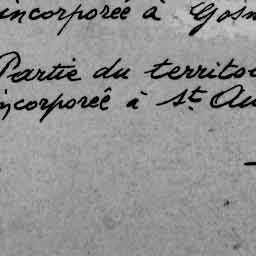 incorporée à Gosn
Partie du territoi
incorporée à St. Au